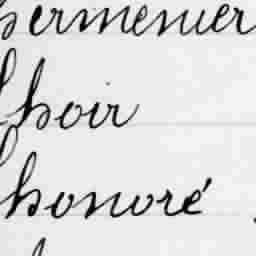 hermenier
Lhoir
Lhonoré